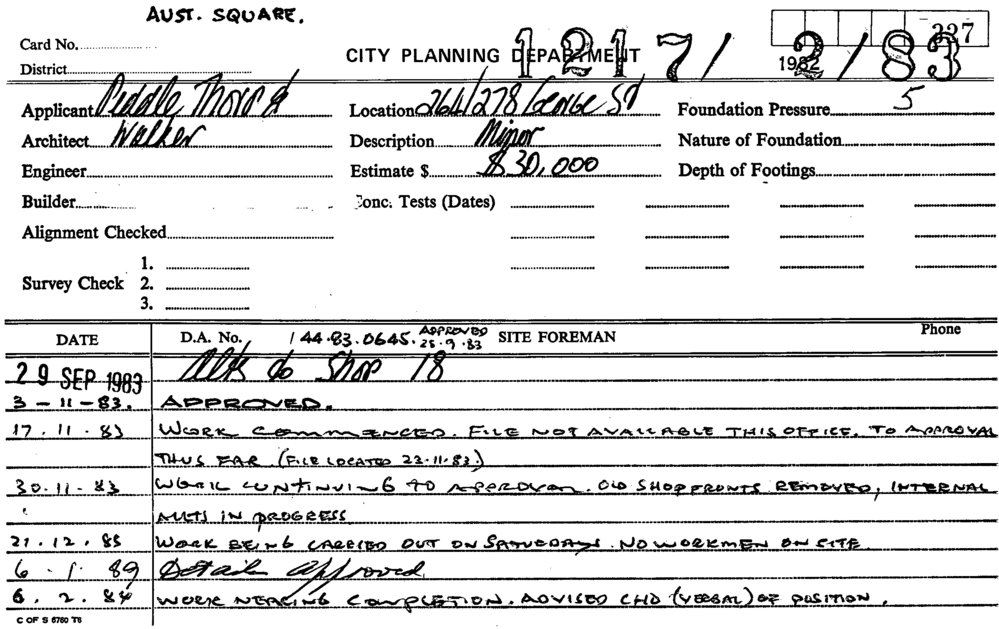 AUST. SQUARE.
Card No.
District
CITY PLANNING DEPARTMENT
1217/2/83
1982
227
Applicant Peddle Thorp &
Location 264/278 George St
Foundation Pressure 5
Architect Walker
Description Minor
Nature of Foundation
Engineer
Estimate $ $30,000
Depth of Footings
Builder
Conc. Tests (Dates)
Alignment Checked
Survey Check 1.
2.
3.
DATE D.A. No. 144.83.0645. APPROVED 28.9.83 SITE FOREMAN Phone
29 SEP 1983 Alts to Shop 18
3-11-83. APPROVED.
17.11.83 WORK COMMENCED. FILE NOT AVAILABLE THIS OFFICE. TO APPROVAL
THUS FAR (FILE LOCATED 23.11.83.)
30.11.83 WORK CONTINUING TO APPROVAL. OLD SHOPFRONTS REMOVED, INTERNAL
ALLTS IN PROGRESS
21.12.83 WORK BEING CARRIED OUT ON SATURDAYS. NO WORKMEN ON SITE
6.1.84 Details approved.
6.2.84 WORK NEARING COMPLETION. ADVISED CHD (VERBAL) OF POSITION.
C OF S 6760 T6